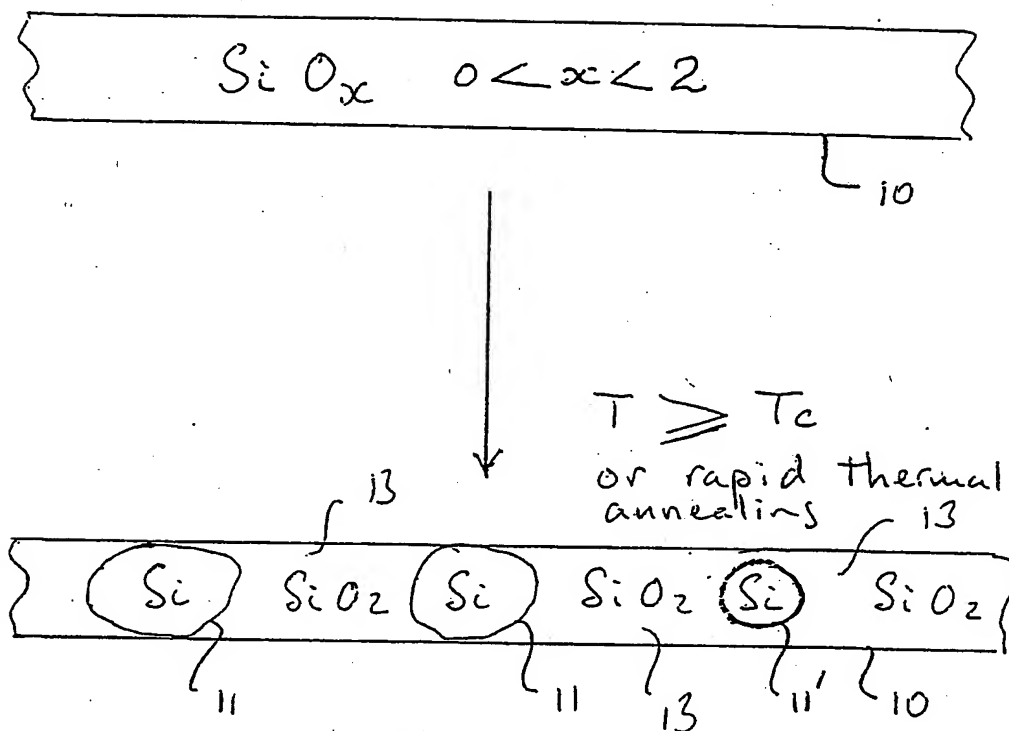 SiOx 0<x<2
10
T ≥ Tc
or rapid thermal
annealing
13
13
Si SiO2 Si SiO2 Si SiO2
11
11
13
11'
10